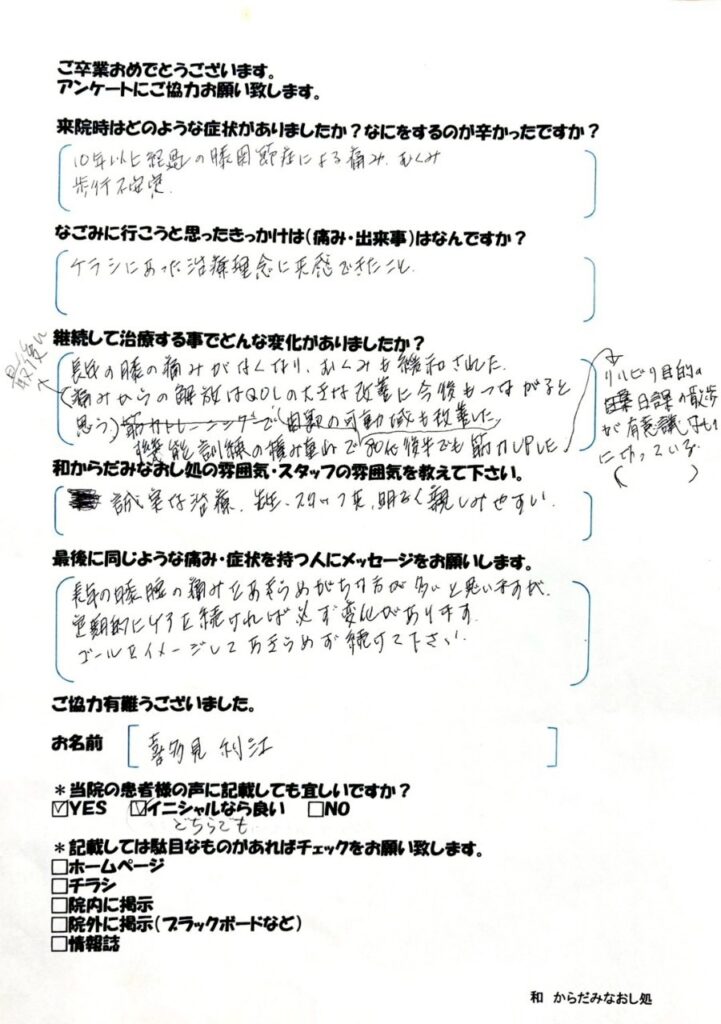 ご卒業おめでとうございます。
アンケートにご協力お願い致します。
来院時はどのような症状がありましたか？なにをするのが辛かったですか？
10年以上経過の膝関節症による痛み、むくみ
歩行不安定
なごみに行こうと思ったきっかけは（痛み・出来事）はなんですか？
チラシにあった治療理念に共感できたこと
継続して治療する事でどんな変化がありましたか？
最後に
長年の膝の痛みがなくなり、むくみも緩和された。
（痛みからの解放はQOLの大きな改善に今後もつながると
思う）筋力トレーニングで 可動域も改善した
機能訓練の積み重ねで80代後半でも筋力UPした
リハビリ目的の
日課の散歩
が有意義
になっている
和からだみなおし処の雰囲気・スタッフの雰囲気を教えて下さい。
誠実な治療、先生、スタッフ共、明るく親しみやすい。
最後に同じような痛み・症状を持つ人にメッセージをお願いします。
長年の膝 の痛みをあきらめがちな方が多いと思いますが、
定期的に を続ければ必ず変化があります。
ゴールをイメージしてあきらめず続けて下さい。
ご協力有難うございました。
お名前 喜多見 利江
＊当院の患者様の声に記載しても宜しいですか？
☑YES ☑イニシャルなら良い □NO
どちらでも
＊記載しては駄目なものがあればチェックをお願い致します。
□ホームページ
□チラシ
□院内に掲示
□院外に掲示（ブラックボードなど）
□情報誌
和 からだみなおし処